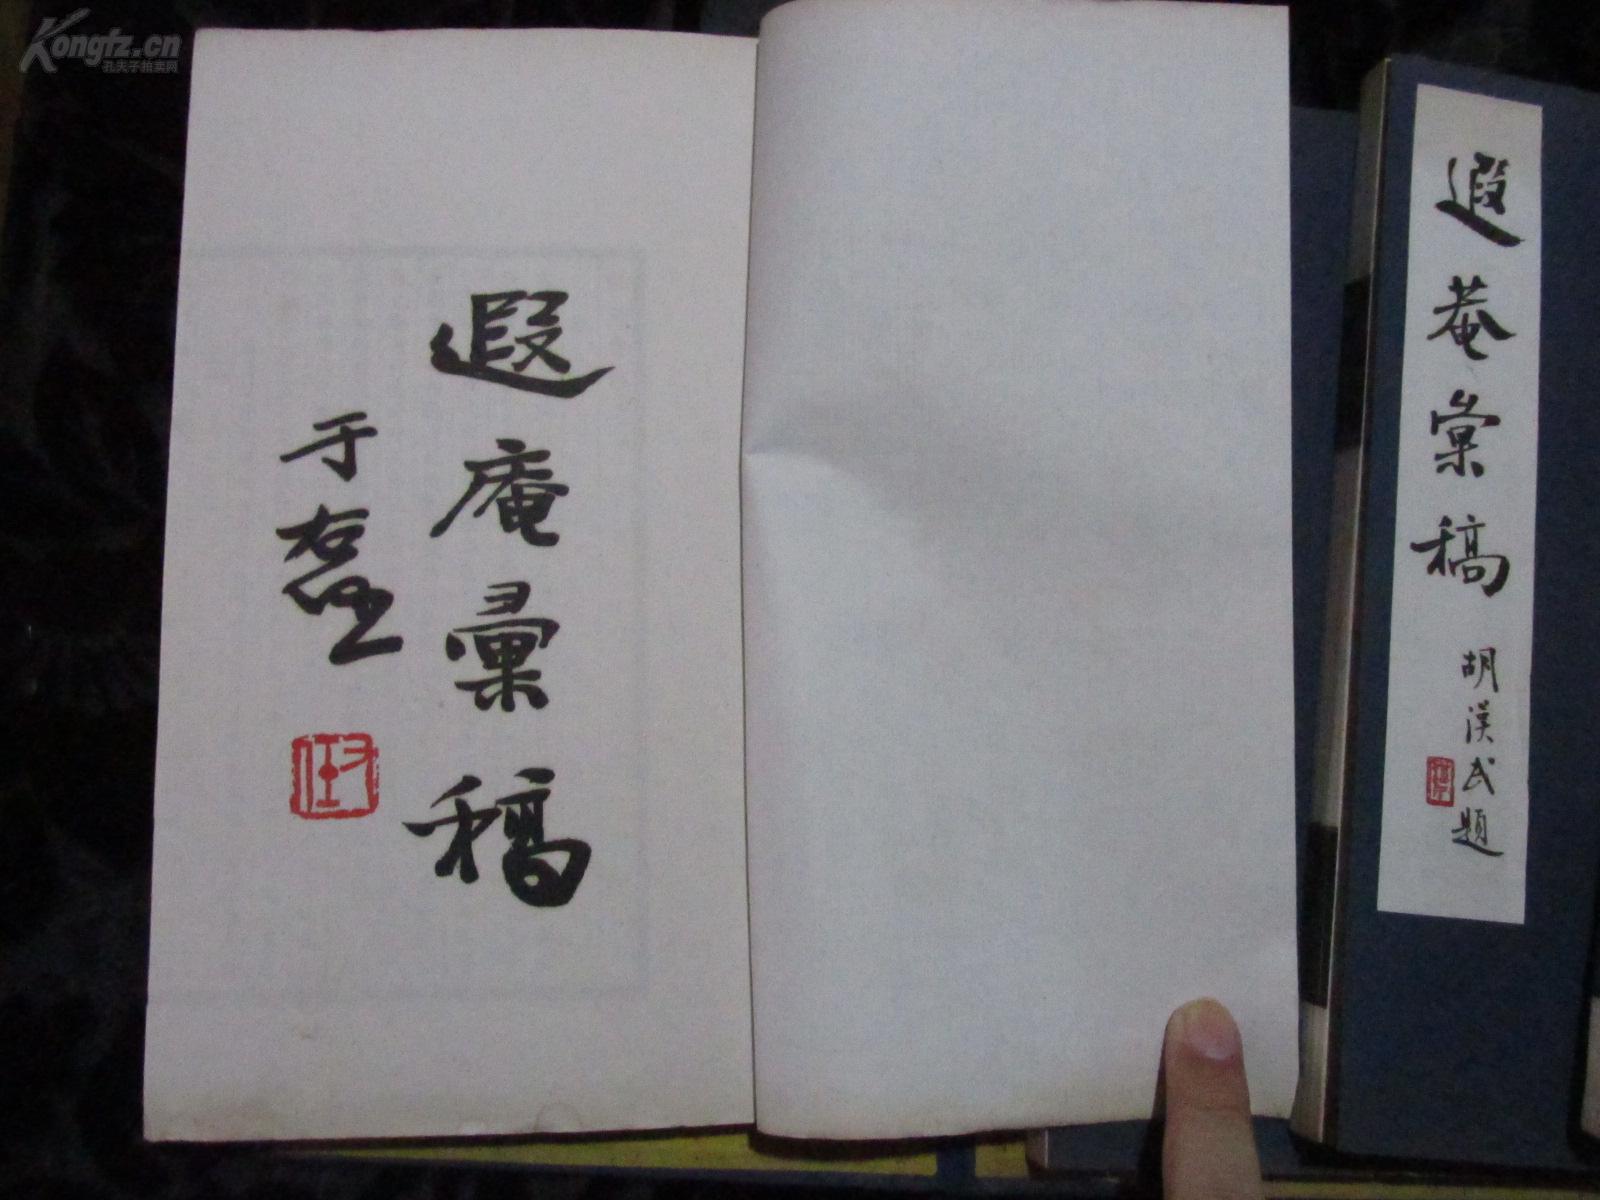 Kongfz.cn
孔夫子拍卖网
遐菴彙稿
胡漢民題
遐庵彙稿
于右任
右任